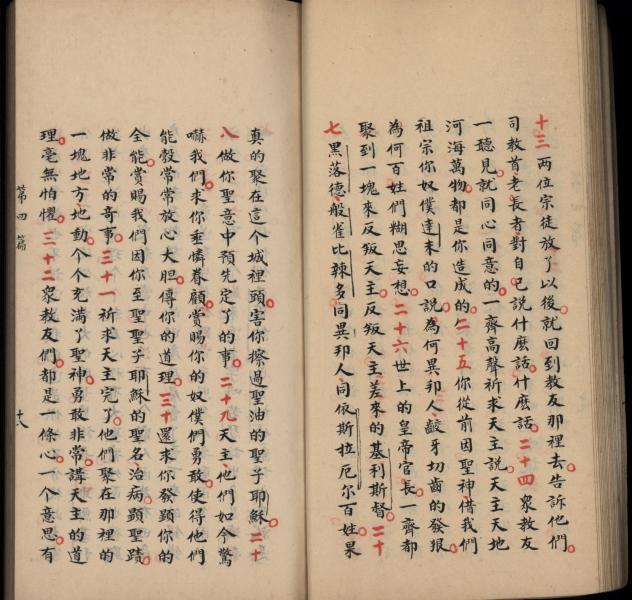 十三 兩位宗徒放了以後就回到教友那裡去。告訴他們。
司教首老長者對自己說什麼話什麼話。二十四 衆教友
一聽見就同心同意的一齊高聲祈求天主說。天主天地
河海萬物都是你造成的。二十五 你從前因聖神借我們
祖宗你奴僕達末的口說為何異邦人齩牙切齒的發狠。
為何百姓們糊思妄想。二十六 世上的皇帝官長。一齊都
聚到一塊來反叛天主反叛天主差來的基利斯督。二十
七 黑落德般雀比辣多同異邦人同依斯拉厄尔百姓。果
真的聚在這个城裡頭。害你擦過聖油的聖子耶穌。二十
八 做你聖意中預先定了的事。二十九 天主他們如今驚
嚇我們。求你垂憐眷顧。賞賜你的奴僕們勇敢。使得他們
能彀常常放心大胆傳你的道理。三十 還求你發顕你的
全能。賞賜我們因你至聖聖子耶穌的聖名。治病。顕聖蹟。
做非常的奇事。三十一 祈求天主完了。他們聚在那裡的
一塊地方。地動。个个充滿了聖神。勇敢非常。講天主的道
理。毫無怕懼。三十二 衆教友們。都是一條心。一个意思。有
第四篇
十八